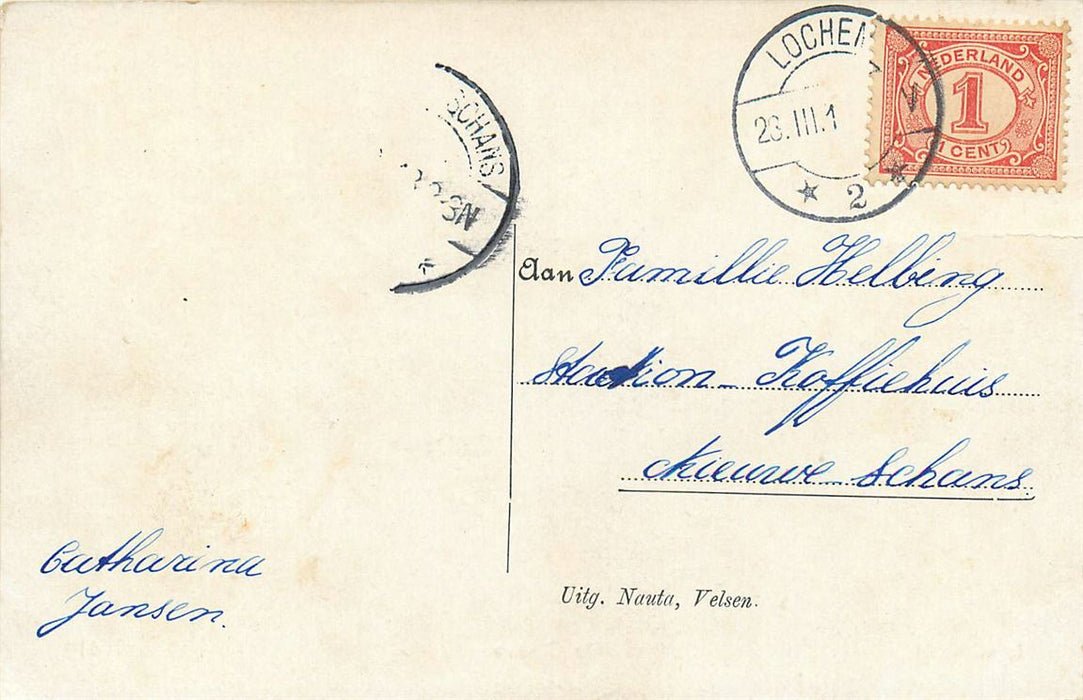 LOCHEM
NEDERLAND
1
1 CENT
SCHANS
2
Aan Familie Helbing
station - Koffiehuis
Nieuwe Schans.
Catharina
Jansen.
Uitg. Nauta, Velsen.